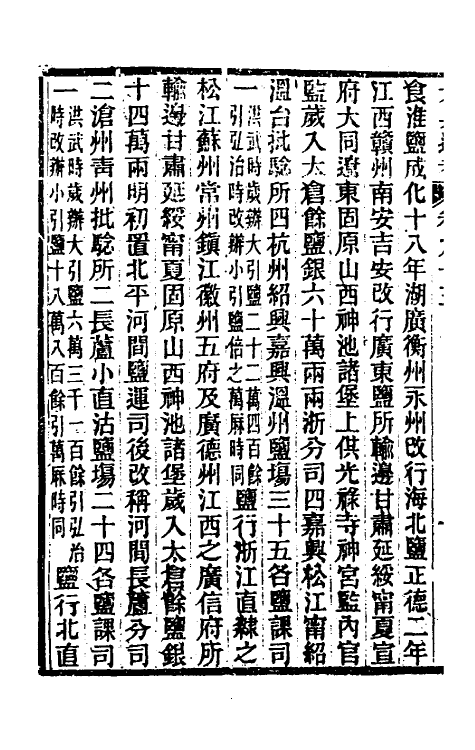 食淮鹽成化十八年湖廣衡州永州改行海北鹽正德二年
江西贛州南安吉安改行廣東鹽所輸邊甘肅延綏甯夏宣
府大同遼東固原山西神池諸堡上供光祿寺神宮監內官
監歲入太倉餘鹽銀六十萬兩兩浙分司四嘉興松江甯紹
溫台批驗所四杭州紹興嘉興溫州鹽場三十五各鹽課司
一洪武時歲辦大引鹽二十二萬四百餘
引弘治時改辦小引鹽倍之萬厤時同鹽行浙江直隸之
松江蘇州常州鎮江徽州五府及廣德州江西之廣信府所
輸邊甘肅延綏甯夏固原山西神池諸堡歲入太倉餘鹽銀
十四萬兩明初置北平河間鹽運司後改稱河間長蘆分司
二滄州青州批驗所二長蘆小直沽鹽場二十四各鹽課司
一洪武時歲辦大引鹽六萬三千一百餘引弘治
時改辦小引鹽十八萬八百餘引萬厤時同鹽行北直